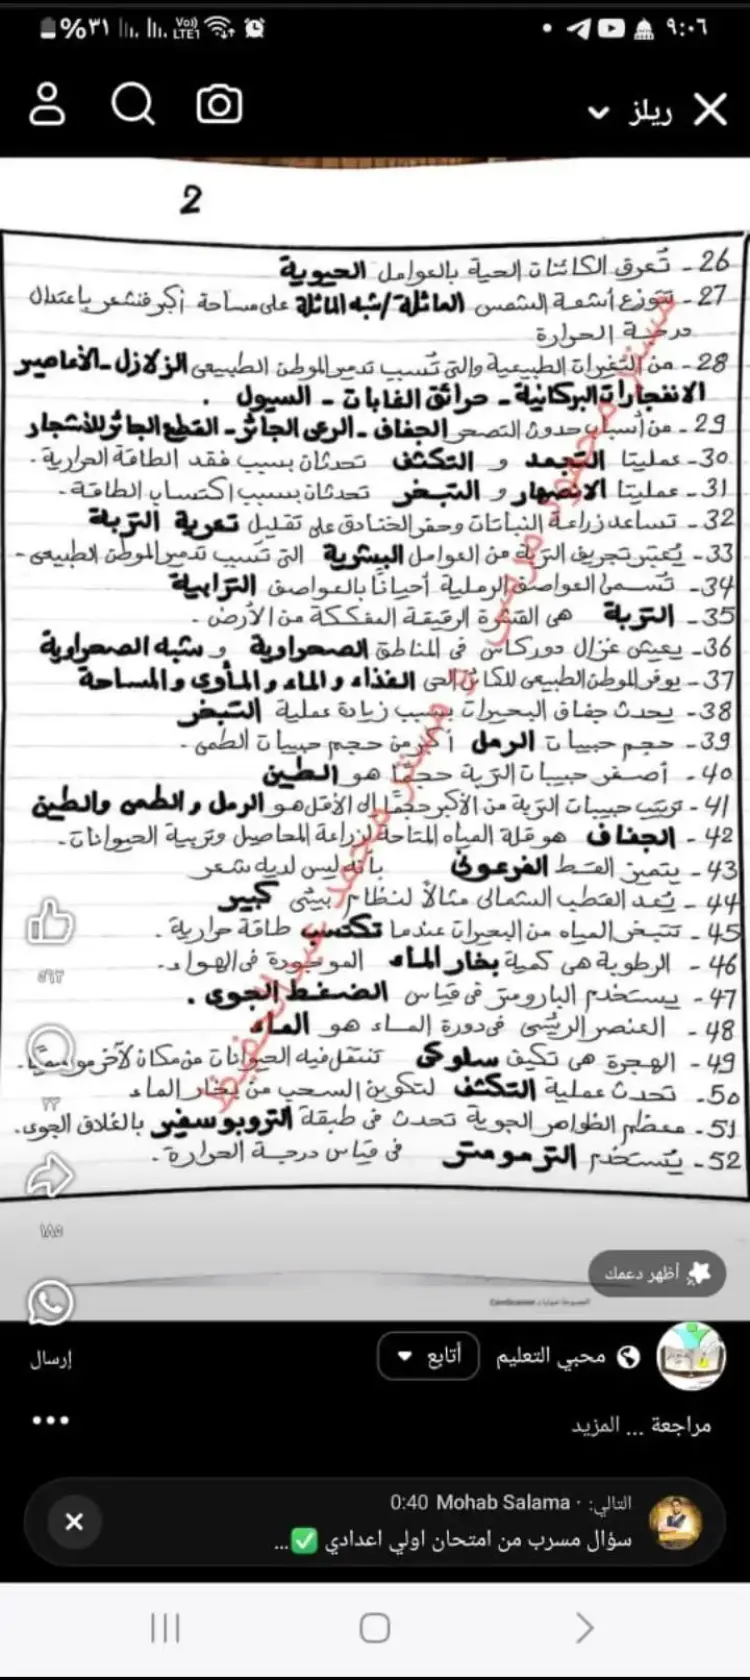 ٩:٠٦
%٣١
ريلز
2
26- تُعرف الكائنات الحية بالعوامل الحيوية
27- تتوزع أشعة الشمس المائلة/شبه المائلة على مساحة أكبر فنشعر باعتدال
درجة الحرارة
28- من التغيرات الطبيعية والتي تسبب تدمير الموطن الطبيعى الزلازل - الأعاصير
الانفجارات البركانية - حرائق الغابات - السيول .
29- من أسباب حدوث التصحر الجفاف - الرعى الجائر - القطع الجائر للأشجار
30- عمليتا التجمد و التكثف تحدثان بسبب فقد الطاقة الحرارية .
31- عمليتا الانصهار و التبخر تحدثان بسبب اكتساب الطاقة .
32- تساعد زراعة النباتات وحفر الخنادق على تقليل تعرية التربة
33- يُعتبر تجريف التربة من العوامل البشرية التى تسبب تدمير الموطن الطبيعى .
34- تُسمى العواصف الرملية أحيانًا بالعواصف الترابية
35- التربة هى القشرة الرقيقة المفككة من الأرض .
36- يعيش غزال دوركاس فى المناطق الصحراوية و شبه الصحراوية
37- يوفر الموطن الطبيعى للكائن الحى الغذاء و الماء و المأوى و المساحة
38- يحدث جفاف البحيرات بسبب زيادة عملية التبخر
39- حجم حبيبات الرمل أكبر من حجم حبيبات الطمى .
40- أصغر حبيبات التربة حجمًا هو الطين
41- ترتيب حبيبات التربة من الأكبر حجمًا إلى الأقل هو الرمل و الطمى والطين
42- الجفاف هو قلة المياه المتاحة لزراعة المحاصيل وتربية الحيوانات .
43- يتميز القط الفرعونى بأنه ليس لديه شعر
44- يُعد القطب الشمالى مثالًا لنظام بيئى كبير
45- تتبخر المياه من البحيرات عندما تكتسب طاقة حرارية .
46- الرطوبة هى كمية بخار الماء الموجودة فى الهواء .
47- يستخدم البارومتر فى قياس الضغط الجوى .
48- العنصر الرئيسى فى دورة الماء هو الماء
49- الهجرة هى تكيف سلوكى تنتقل فيه الحيوانات من مكان لآخر موسميًا .
50- تحدث عملية التكثف لتكوين السحب من بخار الماء
51- معظم الظواهر الجوية تحدث فى طبقة التروبوسفير بالغلاف الجوى .
52- يُستخدم الترمومتر فى قياس درجة الحرارة .
٥٦٢
٢٢
١٨٥
أظهر دعمك
CamScanner
محبي التعليم
أتابع
إرسال
مراجعة ... المزيد
التالي: · Mohab Salama 0:40
سؤال مسرب من امتحان اولي اعدادي ✅...